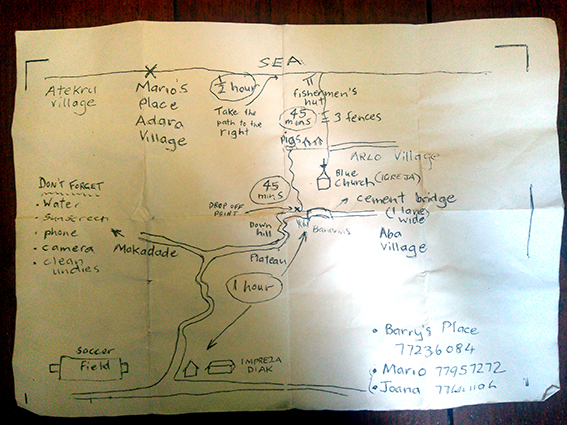 SEA
Atekru
village
Mario's
Place
Adara
Village
1/2 hour
Take the
path to the
right
fishermen's
hut
45
mins
3 fences
Pigs
ARLO Village
Blue
Church (IGREJA)
DON'T FORGET
• Water
• sunscreen
• phone
• camera
• clean
undies
45
mins
DROP OFF
POINT
cement bridge
(1 lane)
wide
Down
hill
Aba
Village
Makadade
Plateau
1 hour
soccer
field
IMPREZA
DIAK
• Barry's Place
77236084
• Mario 77957272
• Joana